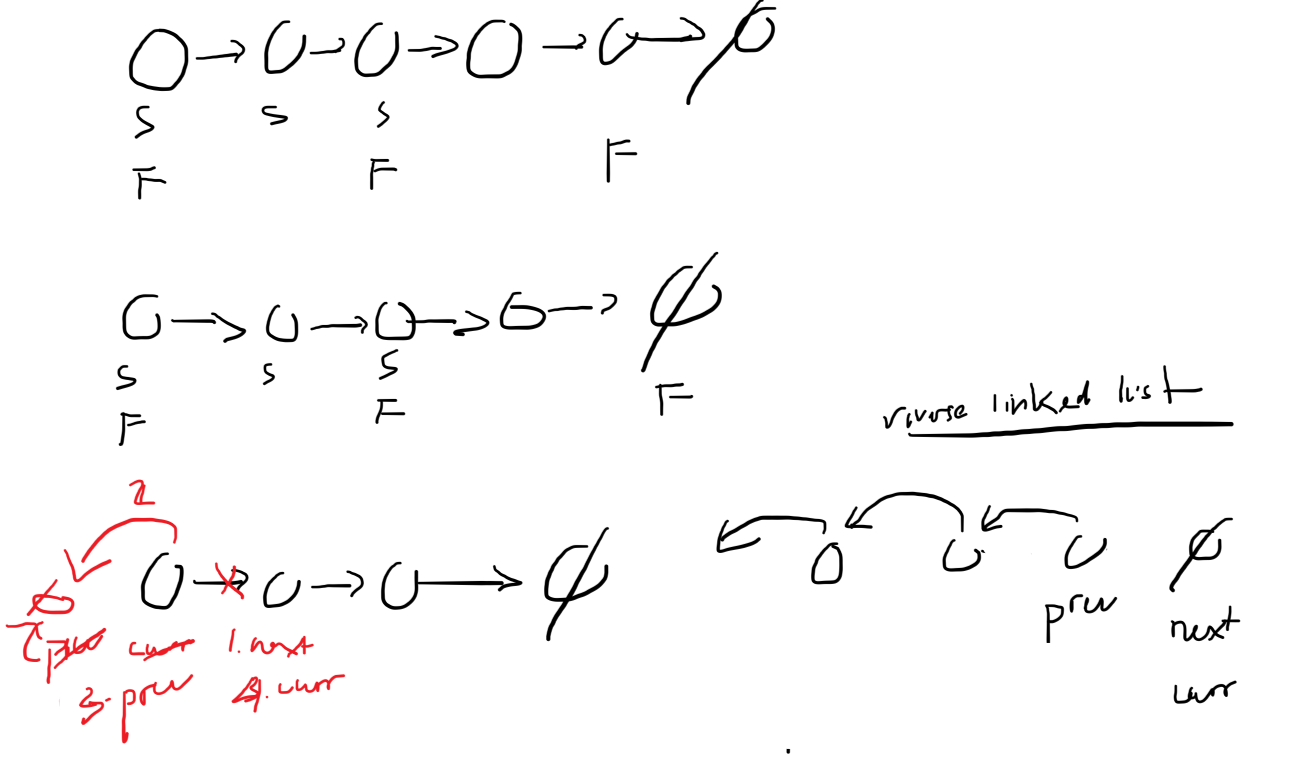 S S S
F F F
S S S
F F F
reverse linked list
2
prev curr 1. next
3. prev 4. curr
prev next
curr